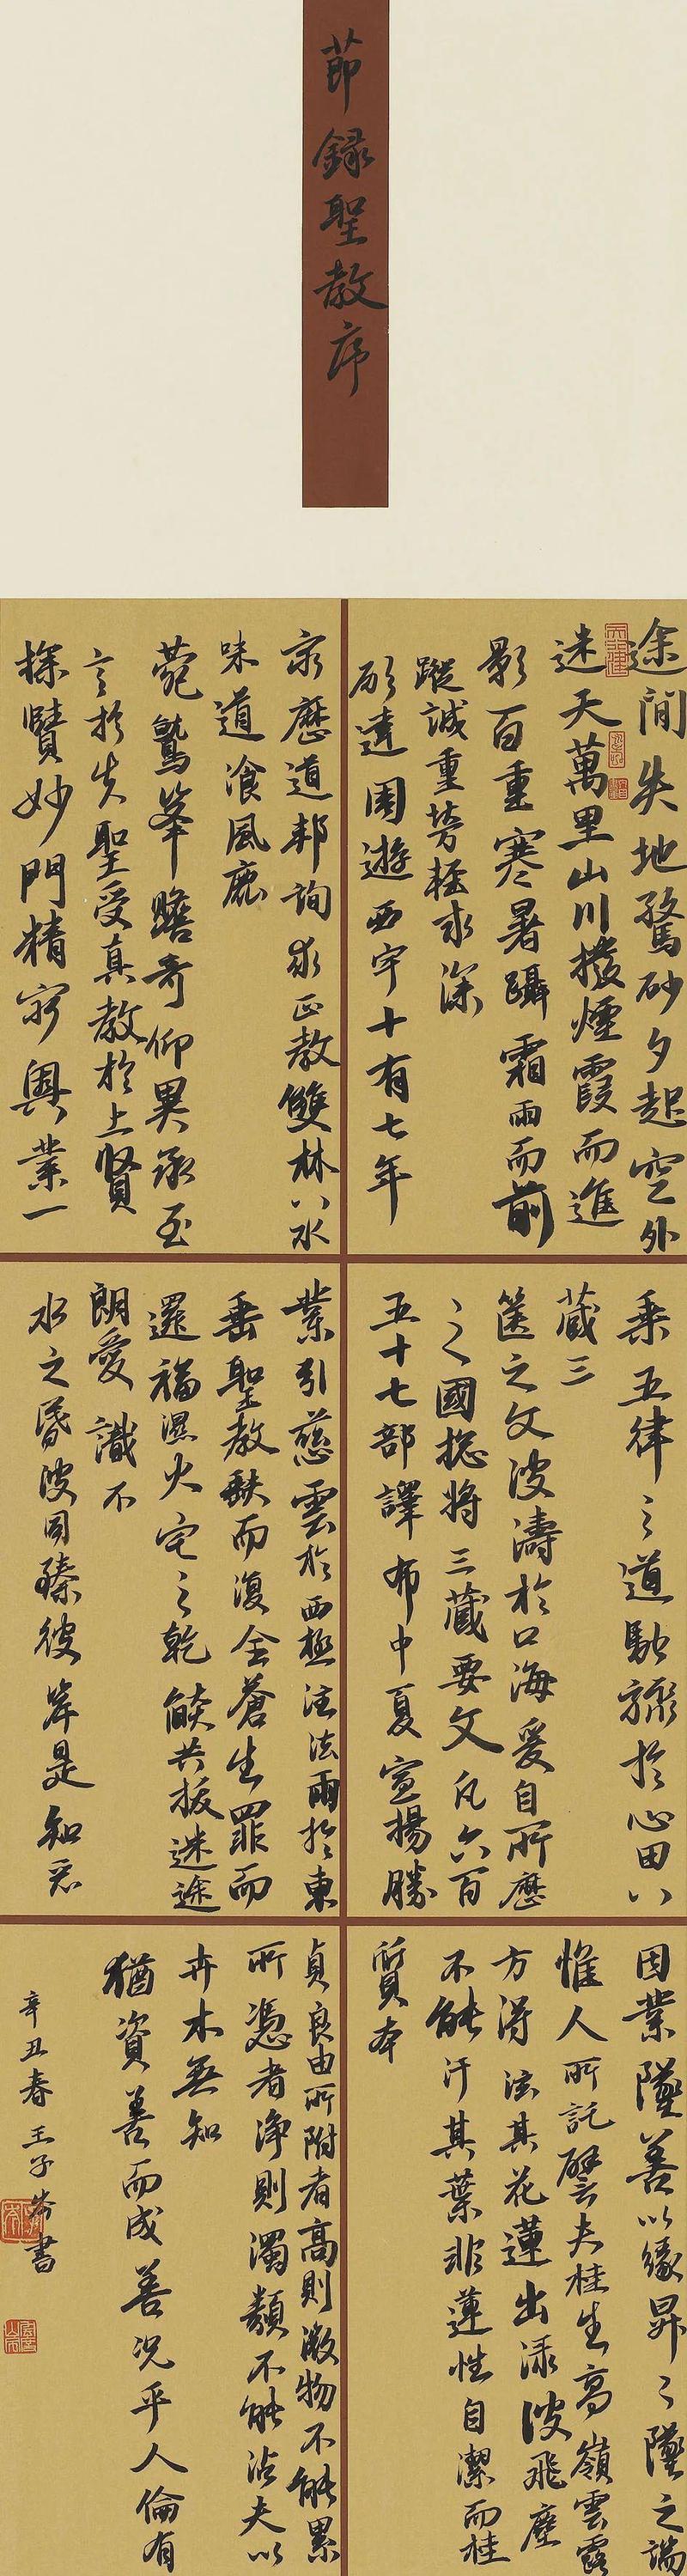 節錄聖教序
途間失地驚砂夕起空外
迷天萬里山川撥煙霞而進
影百重寒暑躡霜雨而前
蹤誠重勞輕求深
願達周遊西宇十有七年
窮歷道邦詢求正教雙林八水
味道飡風鹿
菀鷲峯瞻奇仰異承至
言於先聖受真教於上賢
探賾妙門精窮奧業一
乘五律之道馳驟於心田八
藏三
篋之文波濤於口海爰自所歷
之國捴將三藏要文凡六百
五十七部譯布中夏宣揚勝
業引慈雲於西極注法雨於東
垂聖教缺而復全蒼生罪而
還福濕火宅之乾燄共拔迷途
朗愛識不
水之昏波同臻彼岸是知惡
因業墜善以緣昇々墜之端
惟人所託譬夫桂生高嶺雲露
方得泫其花蓮出淥波飛塵
不能汙其葉非蓮性自潔而桂
質本
貞良由所附者高則微物不能累
所憑者淨則濁類不能沾夫以
卉木無知
猶資善而成善況乎人倫有
辛丑春王子書